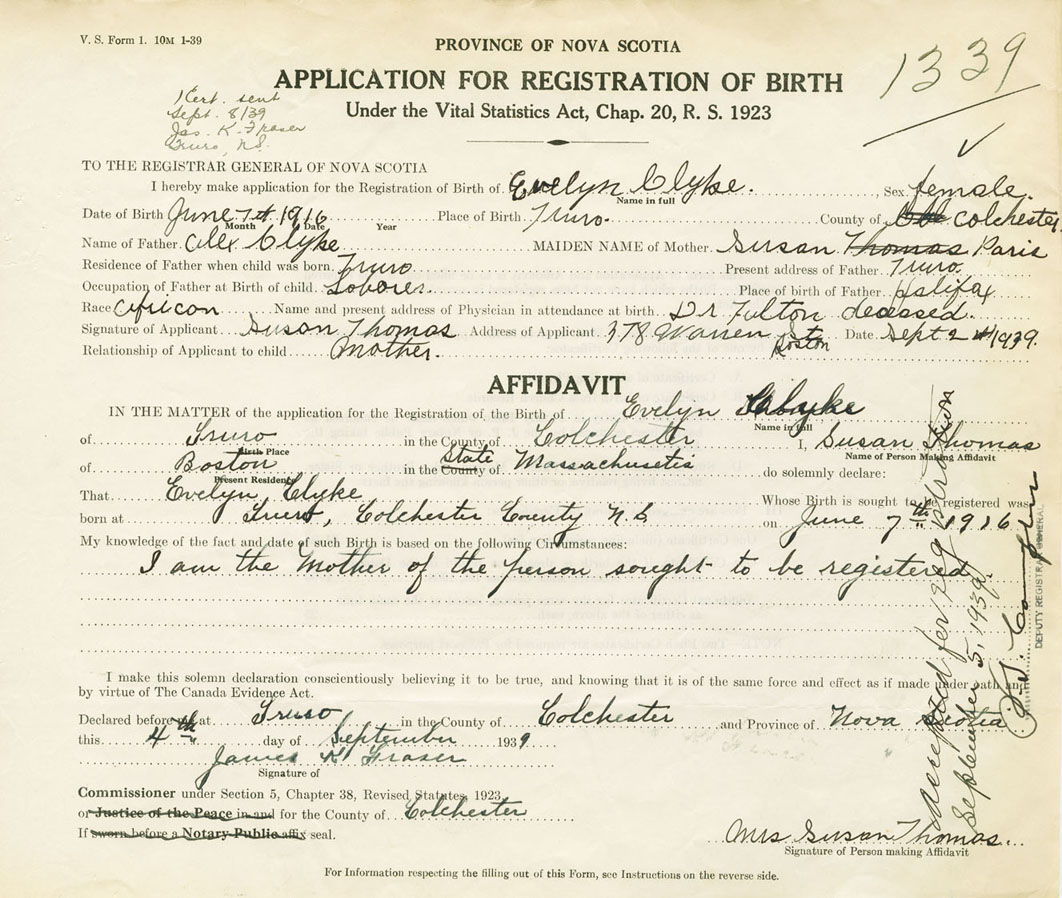 V. S. Form 1. 10M 1-39
PROVINCE OF NOVA SCOTIA
1339
APPLICATION FOR REGISTRATION OF BIRTH
Under the Vital Statistics Act, Chap. 20, R. S. 1923
1 Cert. sent
Sept. 8/39
Jas. K. Fraser
Truro, N.S.
TO THE REGISTRAR GENERAL OF NOVA SCOTIA
I hereby make application for the Registration of Birth of Evelyn Clyke. Sex female.
Name in full
Date of Birth June 7th 1916 Place of Birth Truro. County of Colchester
Month Date Year
Name of Father Alex Clyke MAIDEN NAME of Mother Susan Thomas Paris
Residence of Father when child was born Truro Present address of Father Truro.
Occupation of Father at Birth of child Laborer. Place of birth of Father Halifax
Race African Name and present address of Physician in attendance at birth Dr Fulton deceased.
Signature of Applicant Susan Thomas Address of Applicant 378 Warren St Boston Date Sept 2 1939.
Relationship of Applicant to child Mother.
AFFIDAVIT
IN THE MATTER of the application for the Registration of the Birth of Evelyn Clyke
Name in full
of Truro in the County of Colchester I, Susan Thomas
Birth Place Name of Person Making Affidavit
of Boston in the County State of Massachusetts do solemnly declare:
Present Residence
That Evelyn Clyke Whose Birth is sought to be registered was
born at Truro, Colchester County N.S on June 7th 1916
My knowledge of the fact and date of such Birth is based on the following Circumstances:
I am the Mother of the person sought to be registered
I make this solemn declaration conscientiously believing it to be true, and knowing that it is of the same force and effect as if made under oath and
by virtue of The Canada Evidence Act.
Declared before at Truro in the County of Colchester and Province of Nova Scotia
this 4th day of September 1939
James K Fraser
Signature of
Commissioner under Section 5, Chapter 38, Revised Statutes, 1923
or Justice of the Peace in and for the County of Colchester
If sworn before a Notary Public affix seal.
Mrs Susan Thomas
Signature of Person making Affidavit
Accepted for registration
September 5, 1939.
DEPUTY REGISTRAR GENERAL
For Information respecting the filling out of this Form, see Instructions on the reverse side.